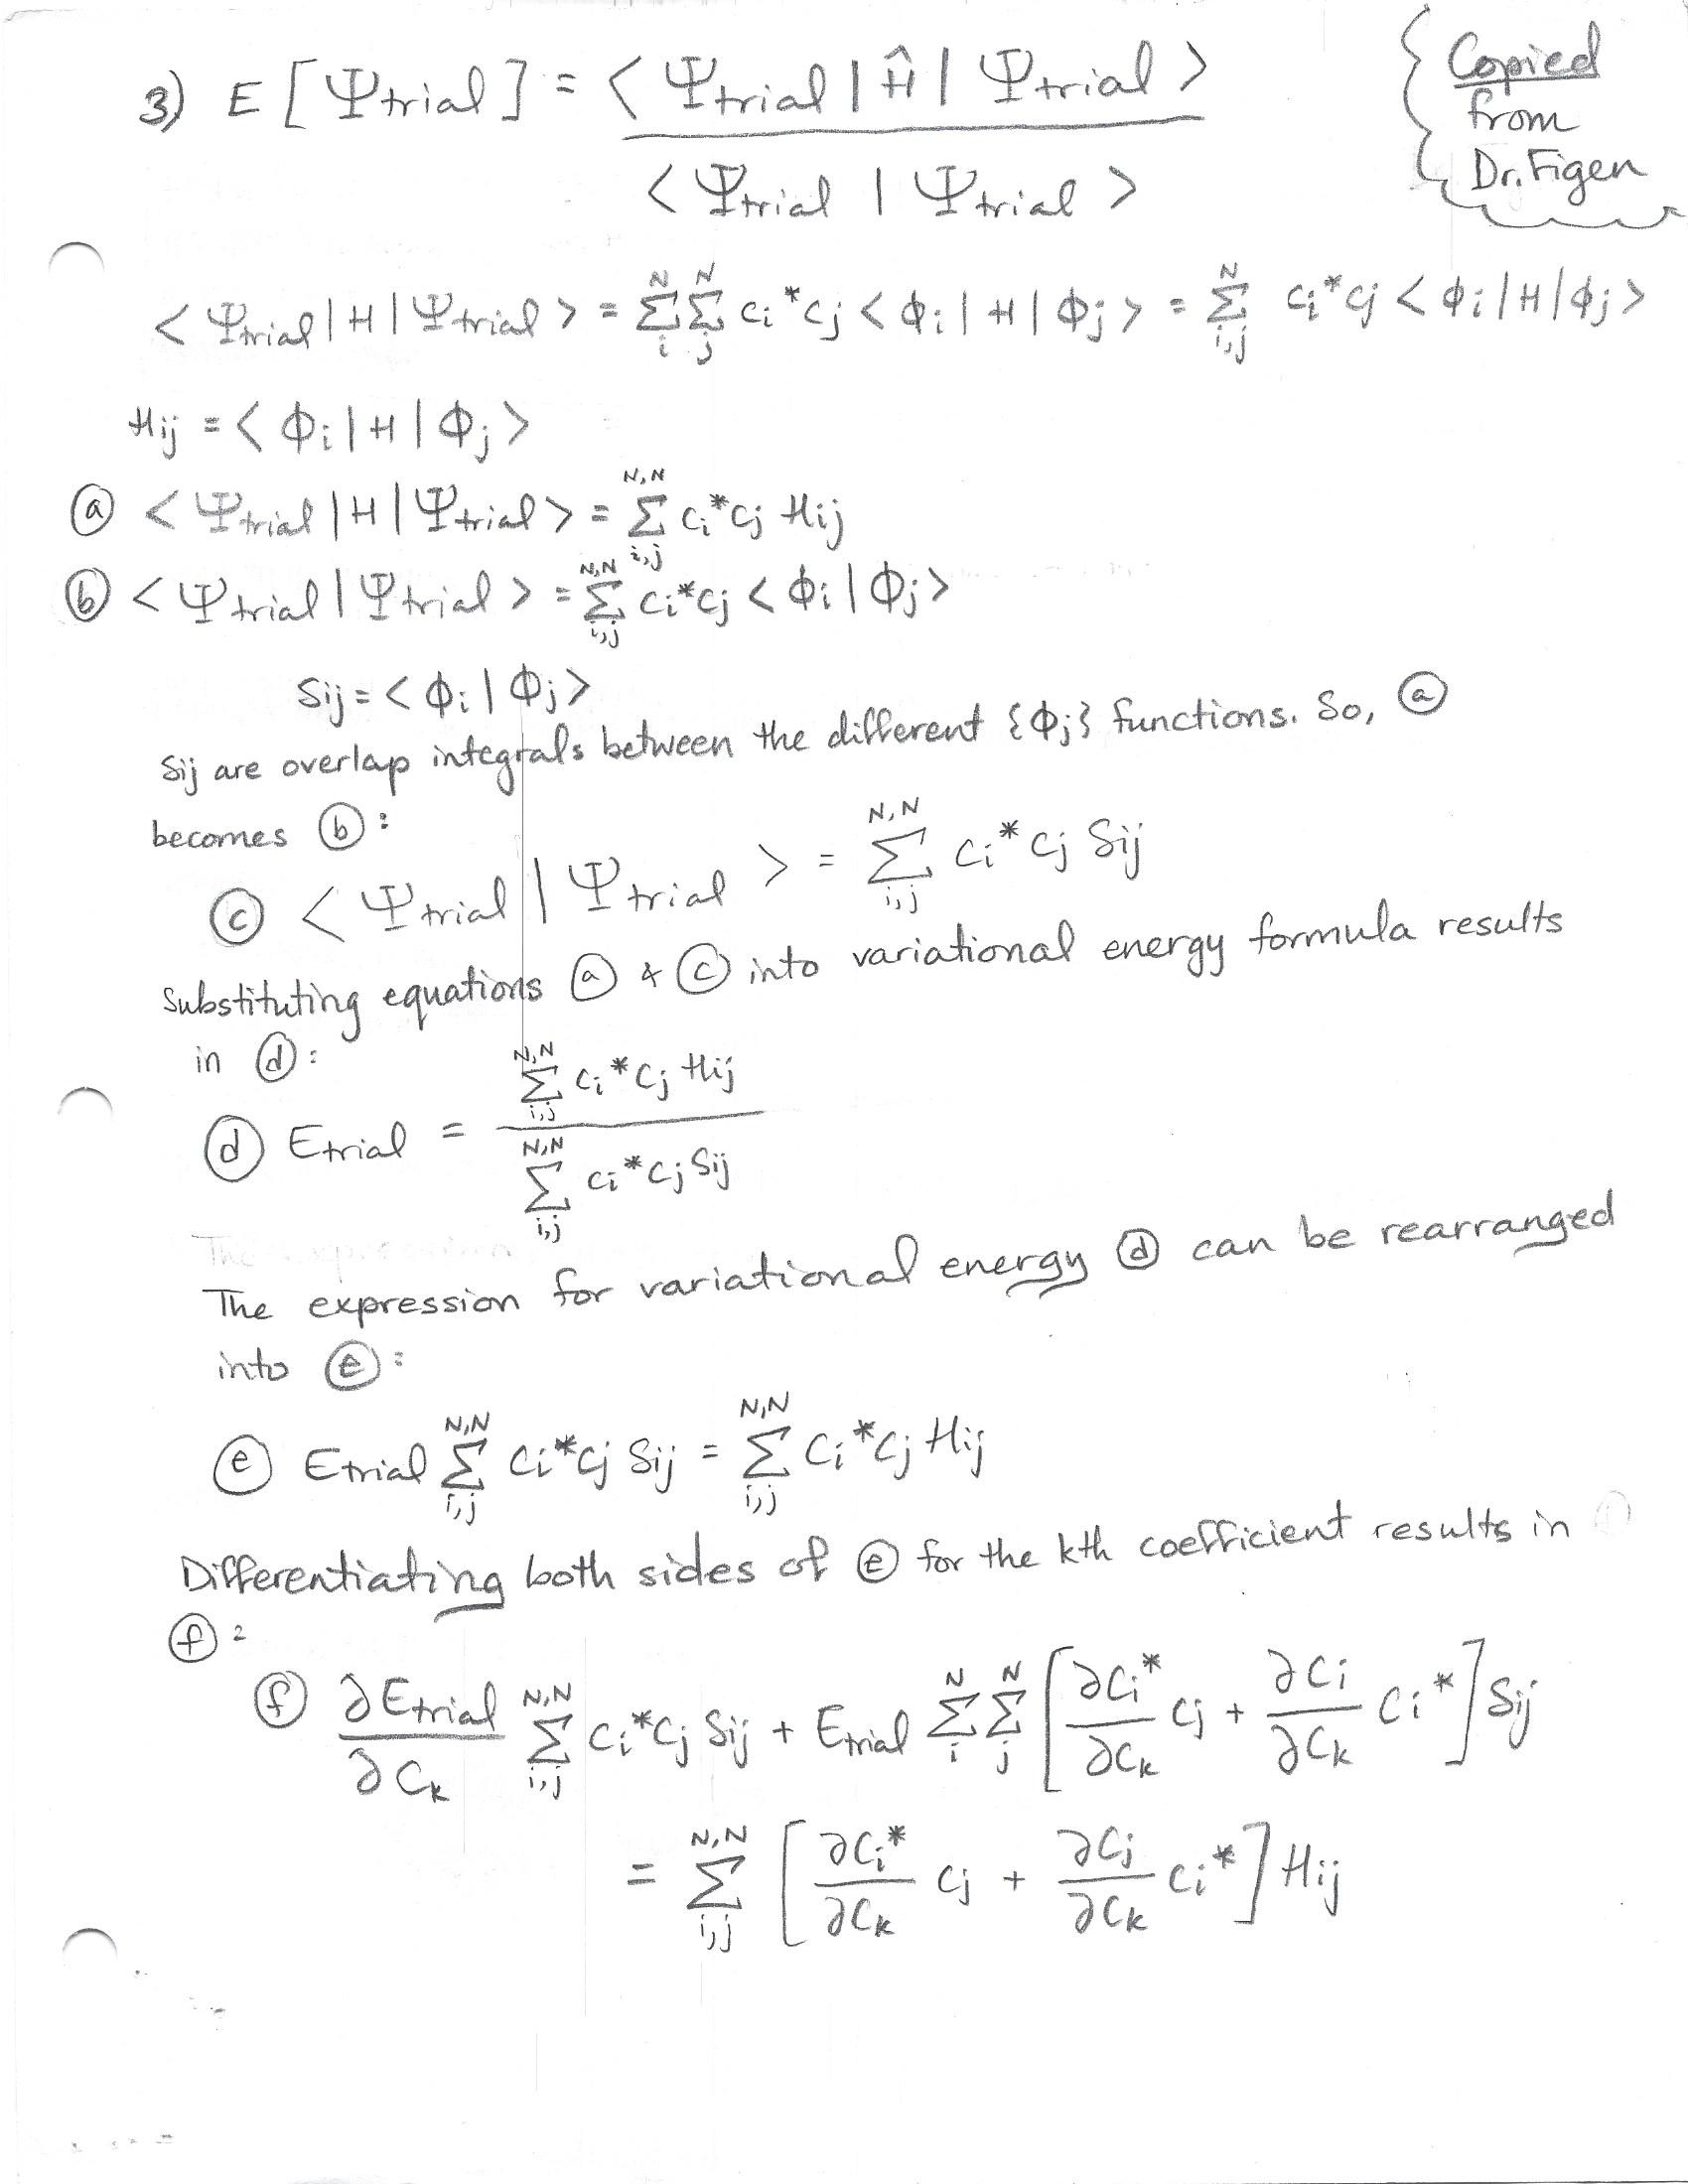 3) E [Ψtrial] = <Ψtrial | Ĥ | Ψtrial> / <Ψtrial | Ψtrial>
{ Copied
from
Dr. Figen
<Ψtrial | H | Ψtrial> = Σ_i^N Σ_j^N ci*cj <Φi | H | Φj> = Σ_{i,j}^N ci*cj <Φi | H | Φj>
Hij = <Φi | H | Φj>
ⓐ <Ψtrial | H | Ψtrial> = Σ_{i,j}^{N,N} ci*cj Hij
ⓑ <Ψtrial | Ψtrial> = Σ_{i,j}^{N,N} ci*cj <Φi | Φj>
Sij = <Φi | Φj>
Sij are overlap integrals between the different {Φj} functions. So, ⓐ
becomes ⓑ:
ⓒ <Ψtrial | Ψtrial> = Σ_{i,j}^{N,N} ci*cj Sij
Substituting equations ⓐ & ⓒ into variational energy formula results
in ⓓ:
ⓓ Etrial = Σ_{i,j}^{N,N} ci*cj Hij / Σ_{i,j}^{N,N} ci*cj Sij
The expression for variational energy ⓓ can be rearranged
into ⓔ:
ⓔ Etrial Σ_{i,j}^{N,N} ci*cj Sij = Σ_{i,j}^{N,N} ci*cj Hij
Differentiating both sides of ⓔ for the kth coefficient results in
ⓕ:
ⓕ ∂Etrial/∂ck Σ_{i,j}^{N,N} ci*cj Sij + Etrial Σ_i^N Σ_j^N [∂ci*/∂ck cj + ∂ci/∂ck ci*] Sij
= Σ_{i,j}^{N,N} [∂ci*/∂ck cj + ∂cj/∂ck ci*] Hij